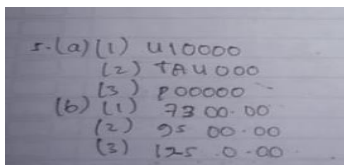 5.(a)(1) U10000
(2) TAU000
(3) P00000
(b)(1) 7300.00
(2) 9500.00
(3) 125 0.00